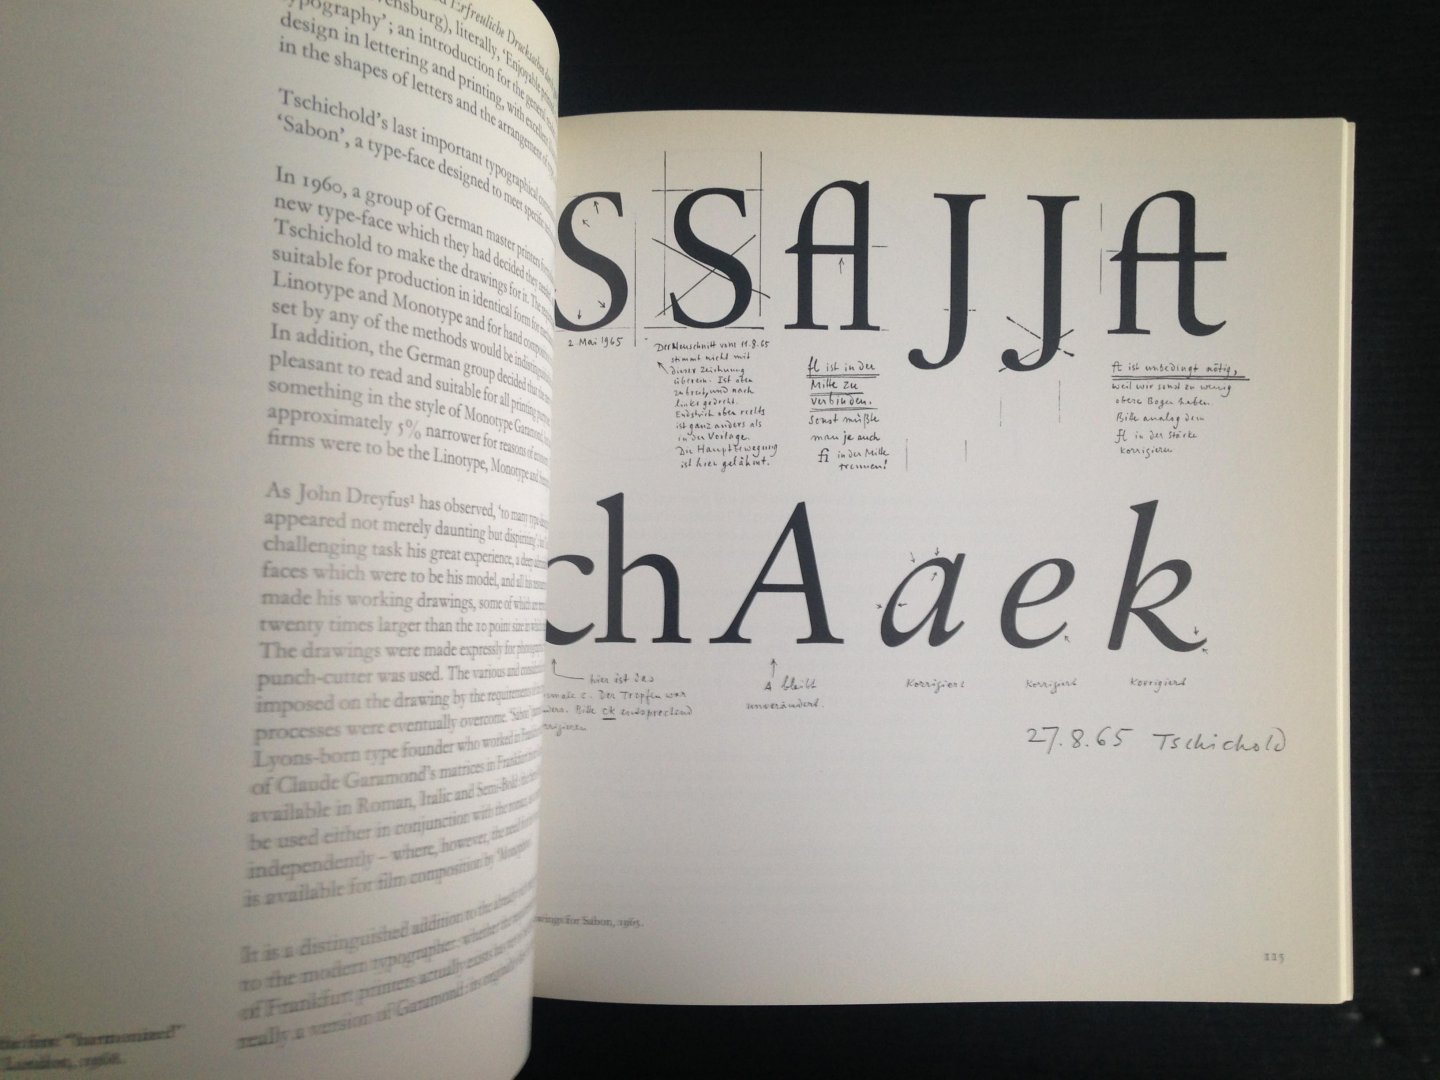 Erfreuliche Drucksachen
literally, 'Enjoyable
typography'; an introduction for the general
design in lettering and printing, with excellent
in the shapes of letters and the arrangement of
Tschichold's last important typographical
'Sabon', a type-face designed to meet specific
In 1960, a group of German master printers
new type-face which they had decided they
Tschichold to make the drawings for it. The
suitable for production in identical form for
Linotype and Monotype and for hand composition
set by any of the methods would be indistinguishable
In addition, the German group decided that the
pleasant to read and suitable for all printing
something in the style of Monotype Garamond
approximately 5% narrower for reasons of
firms were to be the Linotype, Monotype and
As John Dreyfus¹ has observed, 'to many
appeared not merely daunting but dispiriting';
challenging task his great experience, a deep
faces which were to be his model, and all his
made his working drawings, some of which
twenty times larger than the 10 point size in which
The drawings were made expressly for
punch-cutter was used. The various and
imposed on the drawing by the requirements
processes were eventually overcome. 'Sabon'
Lyons-born type founder who worked in Frankfurt
of Claude Garamond's matrices in Frankfurt
available in Roman, Italic and Semi-Bold:
be used either in conjunction with the roman,
independently – where, however, the need
is available for film composition by 'Monophoto'
It is a distinguished addition to the already
to the modern typographer: whether the
of Frankfurt printers actually exists
really a version of Garamond:
"harmonized"
London, 1968.
S S fl J J ft
2. Mai 1965
Der Neuschnitt vom 11.8.65
stimmt nicht mit
dieser Zeichnung
überein. Ist oben
zu breit, und nach
links gedreht.
Endstrich oben rechts
ist ganz anders als
in der Vorlage.
Die Hauptbewegung
ist hier gelähmt.
fl ist in der
Mitte zu
verbinden.
Sonst müßte
man ja auch
fi in der Mitte
trennen!
ft ist unbedingt nötig,
weil wir sonst zu wenig
obere Bogen haben.
Bitte analog dem
fl in der Stärke
korrigieren
ch A a e k
hier ist das
normale c. Der Tropfen war
anders. Bitte ck entsprechend
korrigieren
A bleibt
unverändert.
korrigiert
korrigiert
korrigiert
27.8.65 Tschichold
drawings for Sabon, 1965.
115